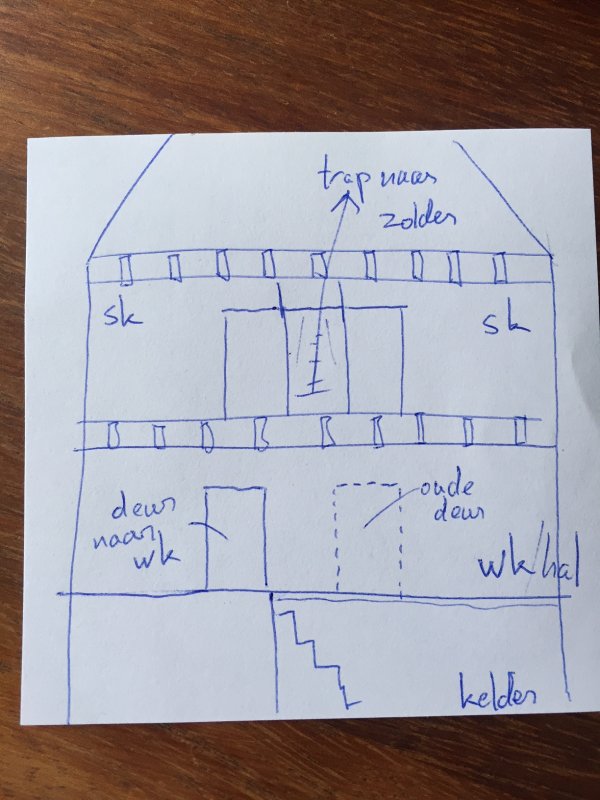 trap naar
zolder
sk
sk
deur
naar
wk
oude
deur
wk/hal
kelder